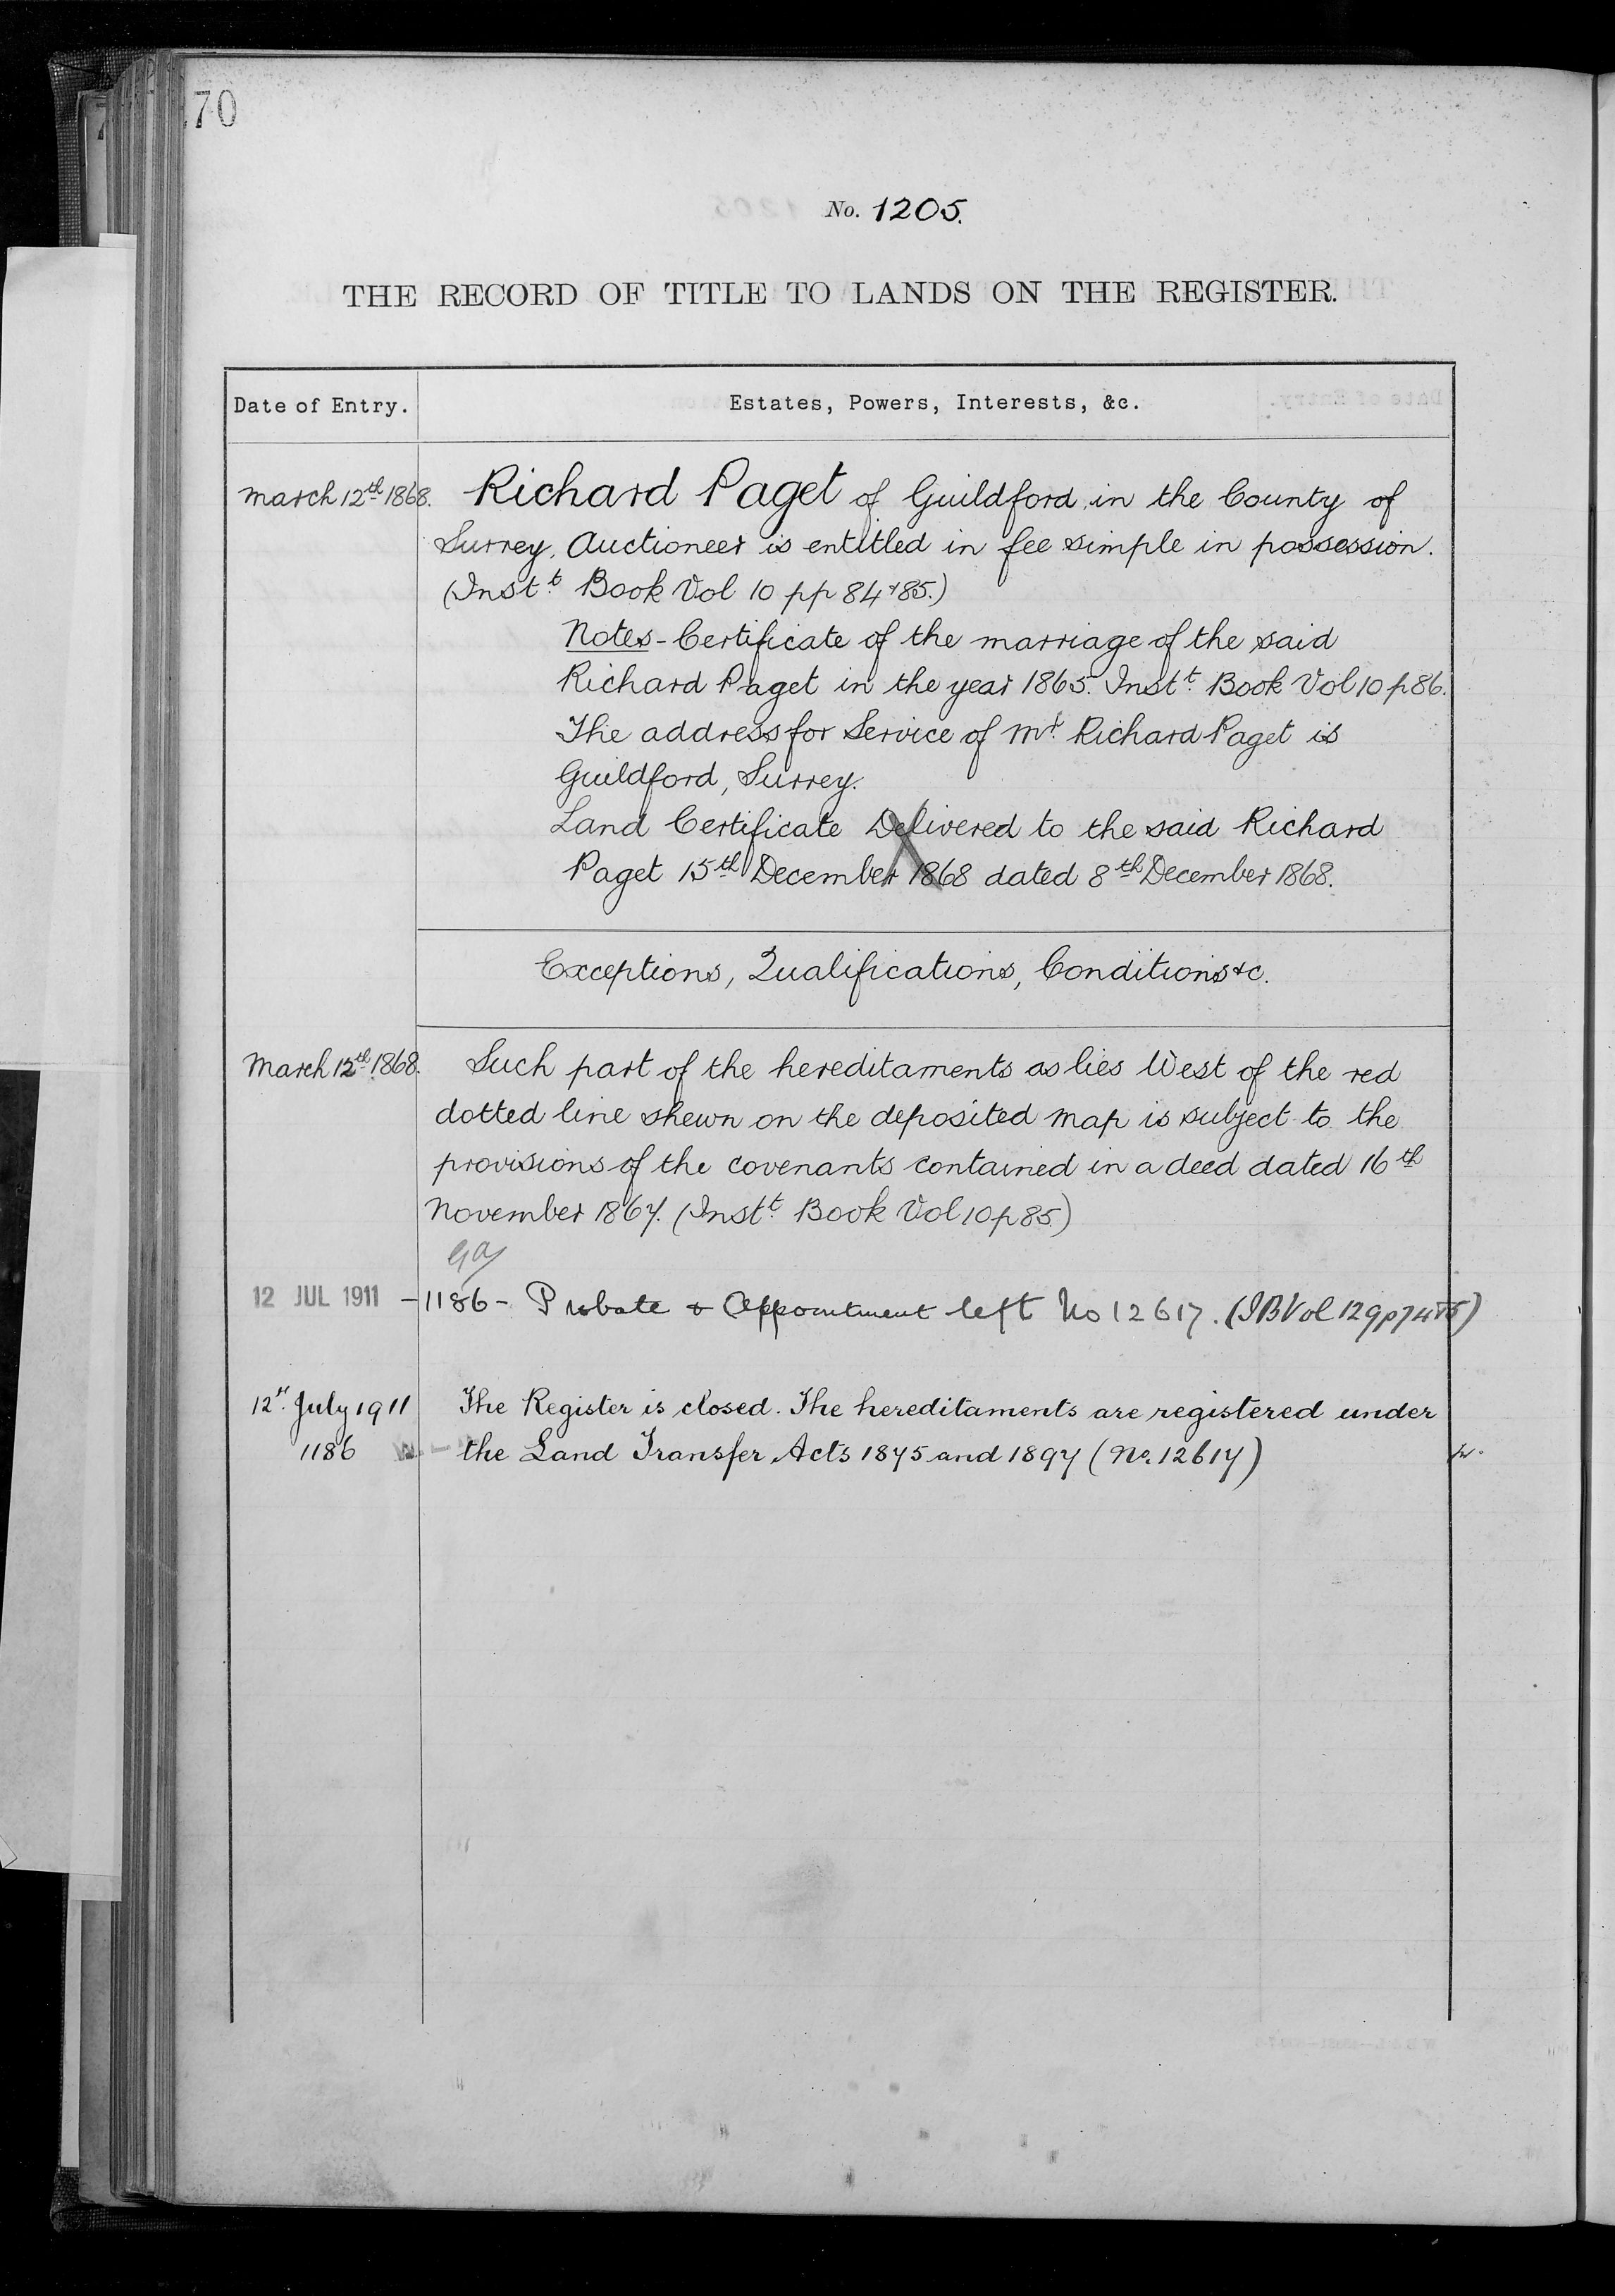 70
No. 1205.
THE RECORD OF TITLE TO LANDS ON THE REGISTER.
Date of Entry.
Estates, Powers, Interests, &c.
March 12th 1868.
Richard Paget of Guildford, in the County of
Surrey, Auctioneer is entitled in fee simple in possession.
(Instt. Book Vol 10 pp 84 & 85.)
Notes - Certificate of the marriage of the said
Richard Paget in the year 1865. Instt. Book Vol 10 p 86.
The address for Service of Mr. Richard Paget is
Guildford, Surrey.
Land Certificate Delivered to the said Richard
Paget 15th December 1868 dated 8th December 1868.
Exceptions, Qualifications, Conditions &c.
March 12th 1868.
Such part of the hereditaments as lies West of the red
dotted line shewn on the deposited map is subject to the
provisions of the covenants contained in a deed dated 16th
November 1867. (Instt. Book Vol 10 p 85)
12 JUL 1911
-1186- Probate & Appointment left No 12617. (IB Vol 129 p 74
12th. July 1911
1186
The Register is closed. The hereditaments are registered under
the Land Transfer Acts 1875 and 1897 (No. 12617)